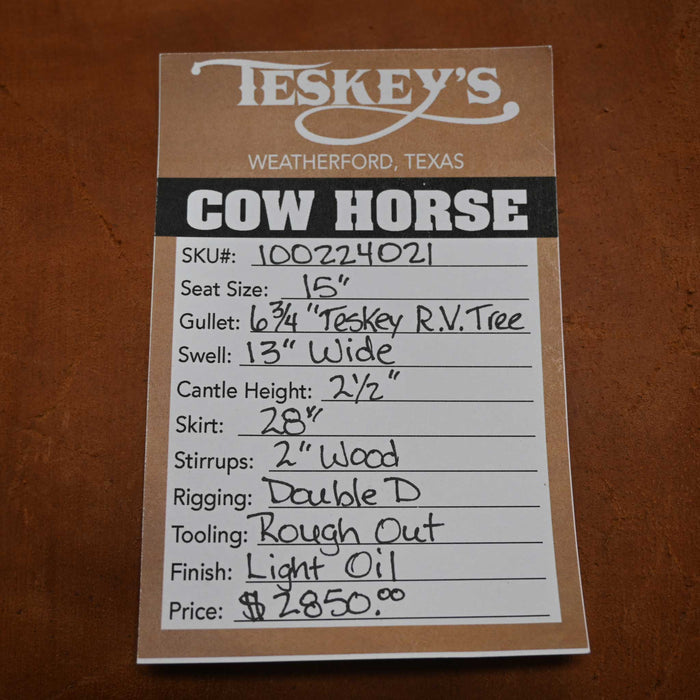 TESKEY'S
WEATHERFORD, TEXAS
COW HORSE
SKU#: 100224021
Seat Size: 15"
Gullet: 6 3/4" Teskey R.V. Tree
Swell: 13" Wide
Cantle Height: 2 1/2"
Skirt: 28"
Stirrups: 2" Wood
Rigging: Double D
Tooling: Rough Out
Finish: Light Oil
Price: $2850.00